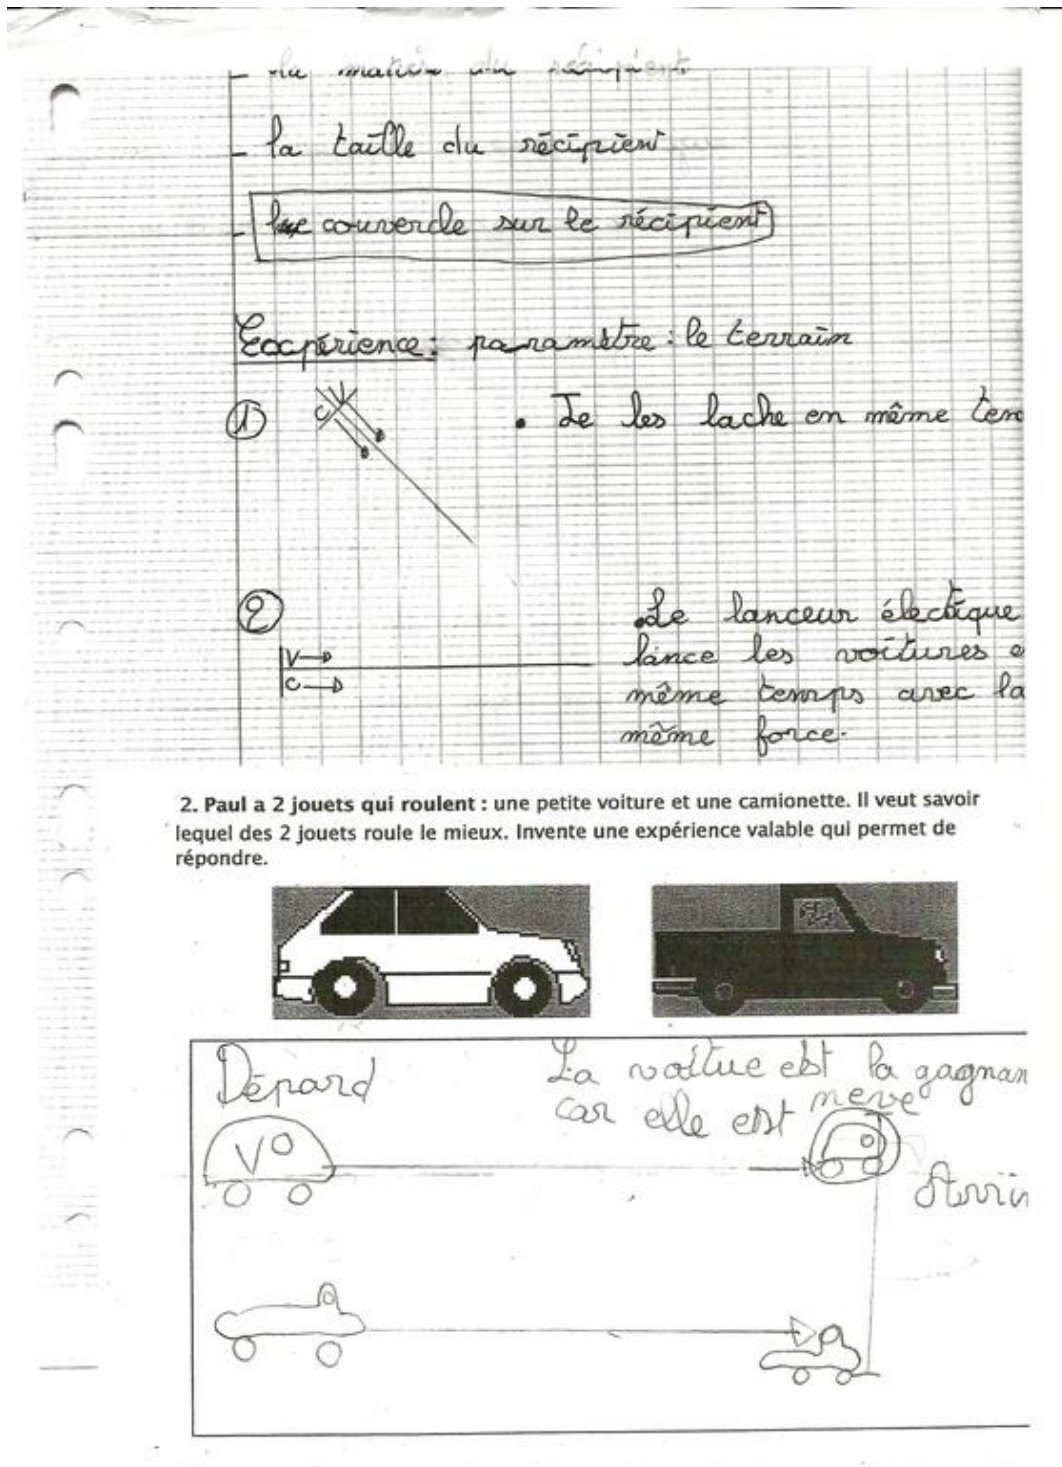 - la matièr du récipient
- la taille du récipient
- le couvercle sur le récipient
Expérience: paramètre: le terrain
① C • Je les lache en même tem
②
V
C
• Le lanceur électique
lance les voitures e
même temps avec la
même force.
2. Paul a 2 jouets qui roulent : une petite voiture et une camionette. Il veut savoir
lequel des 2 jouets roule le mieux. Invente une expérience valable qui permet de
répondre.
Dépard
La voitue est la gagnan
car elle est neuve
V
Arriv